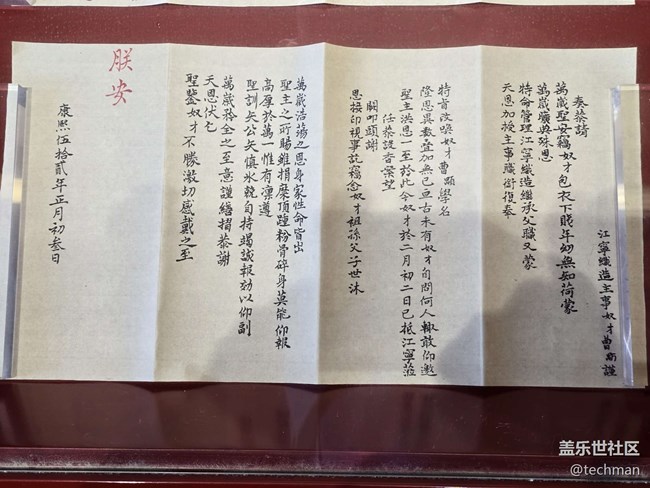 江寧織造主事奴才曹顒謹
奏恭請
萬歲聖安竊奴才包衣下賤年幼無知荷蒙
萬歲曠典殊恩
特命管理江寧織造繼承父職又蒙
天恩加授主事職銜復奉
特旨改喚奴才曹顒學名
隆恩異數疊加無已亘古未有奴才自問何人輙敢仰邀
聖主洪恩一至於此今奴才於二月初二日已抵江寧蒞
任恭設香案望
闕叩頭謝
恩接印視事訖竊念奴才祖孫父子世沐
萬歲浩蕩之恩身家性命皆出
聖主之所賜雖捐糜頂踵粉骨碎身莫能仰報
高厚於萬一惟有凛遵
聖訓矢公矢慎氷兢自持竭誠報効以仰副
萬歲矜全之至意謹繕摺恭謝
天恩伏乞
聖鑒奴才不勝激切感戴之至
康熙伍拾貳年正月初叁日
朕安
盖乐世社区
@techman